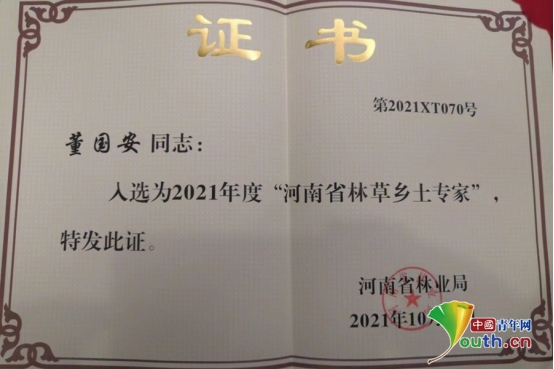 证书
第2021XT070号
董国安 同志：
入选为2021年度“河南省林草乡土专家”，
特发此证。
河南省林业局
2021年10
中國青年网
Youth.cn